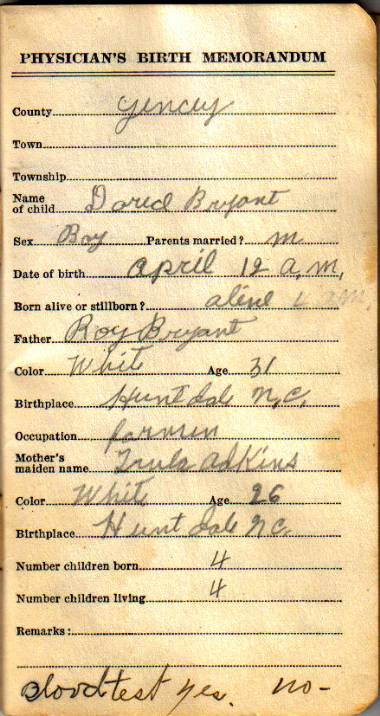 PHYSICIAN'S BIRTH MEMORANDUM
County yencey
Town
Township
Name of child David Bryant
Sex Boy Parents married? m
Date of birth april 12 a,m,
Born alive or stillborn? alive
Father Roy Bryant
Color White Age 31
Birthplace Huntdale N,C,
Occupation farmin
Mother's maiden name adkins
Color White Age 26
Birthplace Huntdale NC.
Number children born 4
Number children living 4
Remarks:
bloodtest yes. no-